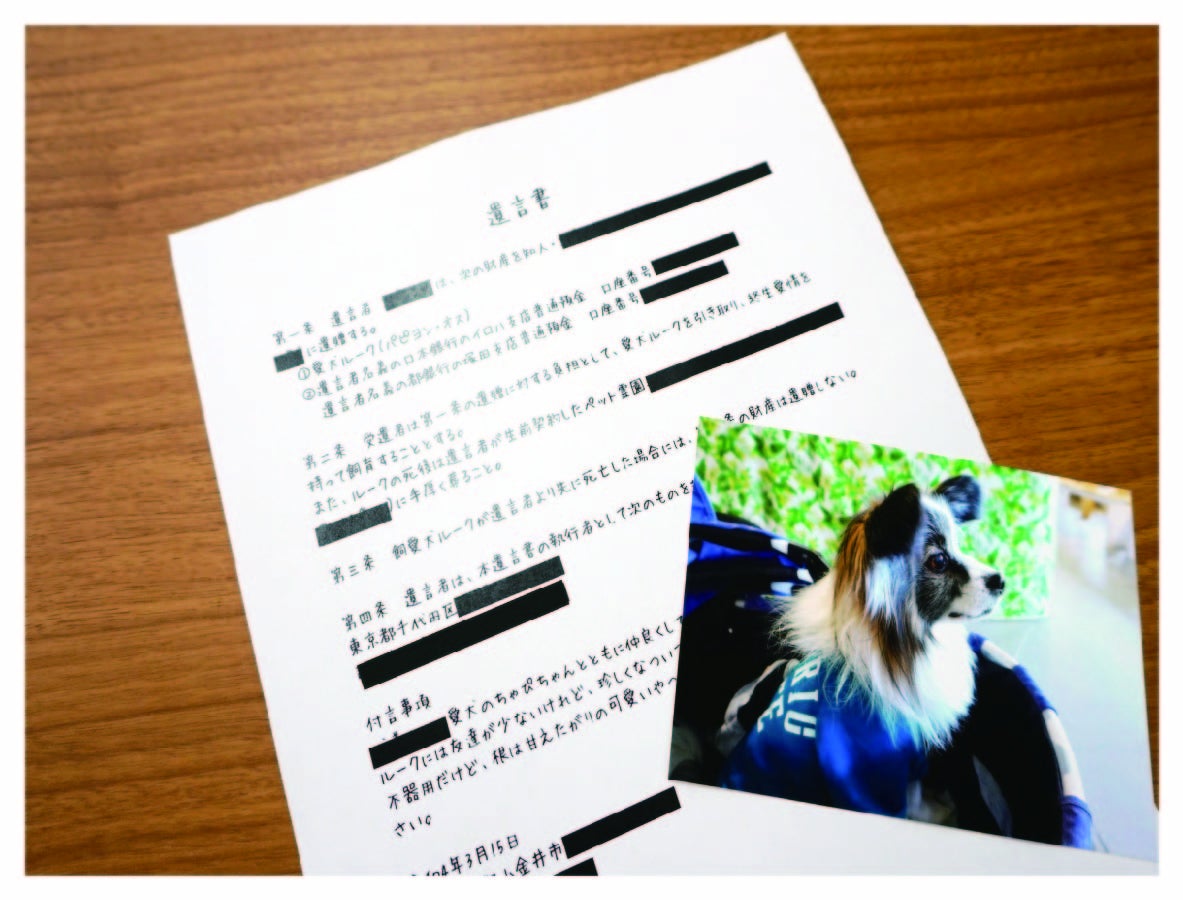 遺言書
第一条　遺言者　は、次の財産を知人・
に遺贈する。
①愛犬ルーク(パピヨン・オス)
②遺言者名義の日本銀行のイロハ支店普通預金　口座番号
遺言者名義の都銀行の塚田支店普通預金　口座番号
第二条　受遺者は第一条の遺贈に対する負担として、愛犬ルークを引き取り、終生愛情を
持って飼育することとする。
また、ルークの死後は遺言者が生前契約したペット霊園
)に手厚く葬ること。
第三条　飼愛犬ルークが遺言者より先に死亡した場合には、条の財産は遺贈しない。
第四条　遺言者は、本遺言書の執行者として次のものを
東京都千代田区
付言事項
愛犬のちゃぴちゃんとともに仲良くして
ルークには友達が少ないけれど、珍しくなつい
不器用だけど、根は甘えたがりの可愛いや
さい。
4年3月15日
小金井市